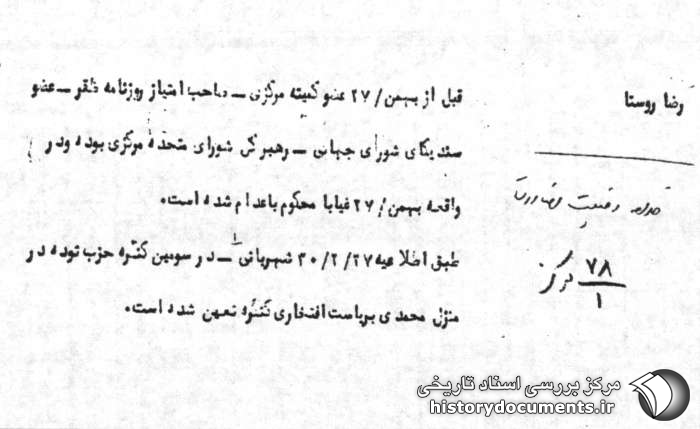 رضا روستا
قبل از بهمن/ ۲۷ عضو کمیته مرکزی ــ صاحب امتیاز روزنامه ظفر ــ عضو
سندیکای شورای جهانی ــ رهبر کل شورای متحده مرکزی بوده و در
واقعه بهمن/ ۲۷ غیابا محکوم باعدام شده است.
طبق اطلاعیه ۳۰/۲/۲۷ شهربانی ــ در سومین کنگره حزب توده در
منزل محمدی بریاست افتخاری کنگره تعیین شده است.
۷۸
۱
مرکز بررسی اسناد تاریخی
historydocuments.ir